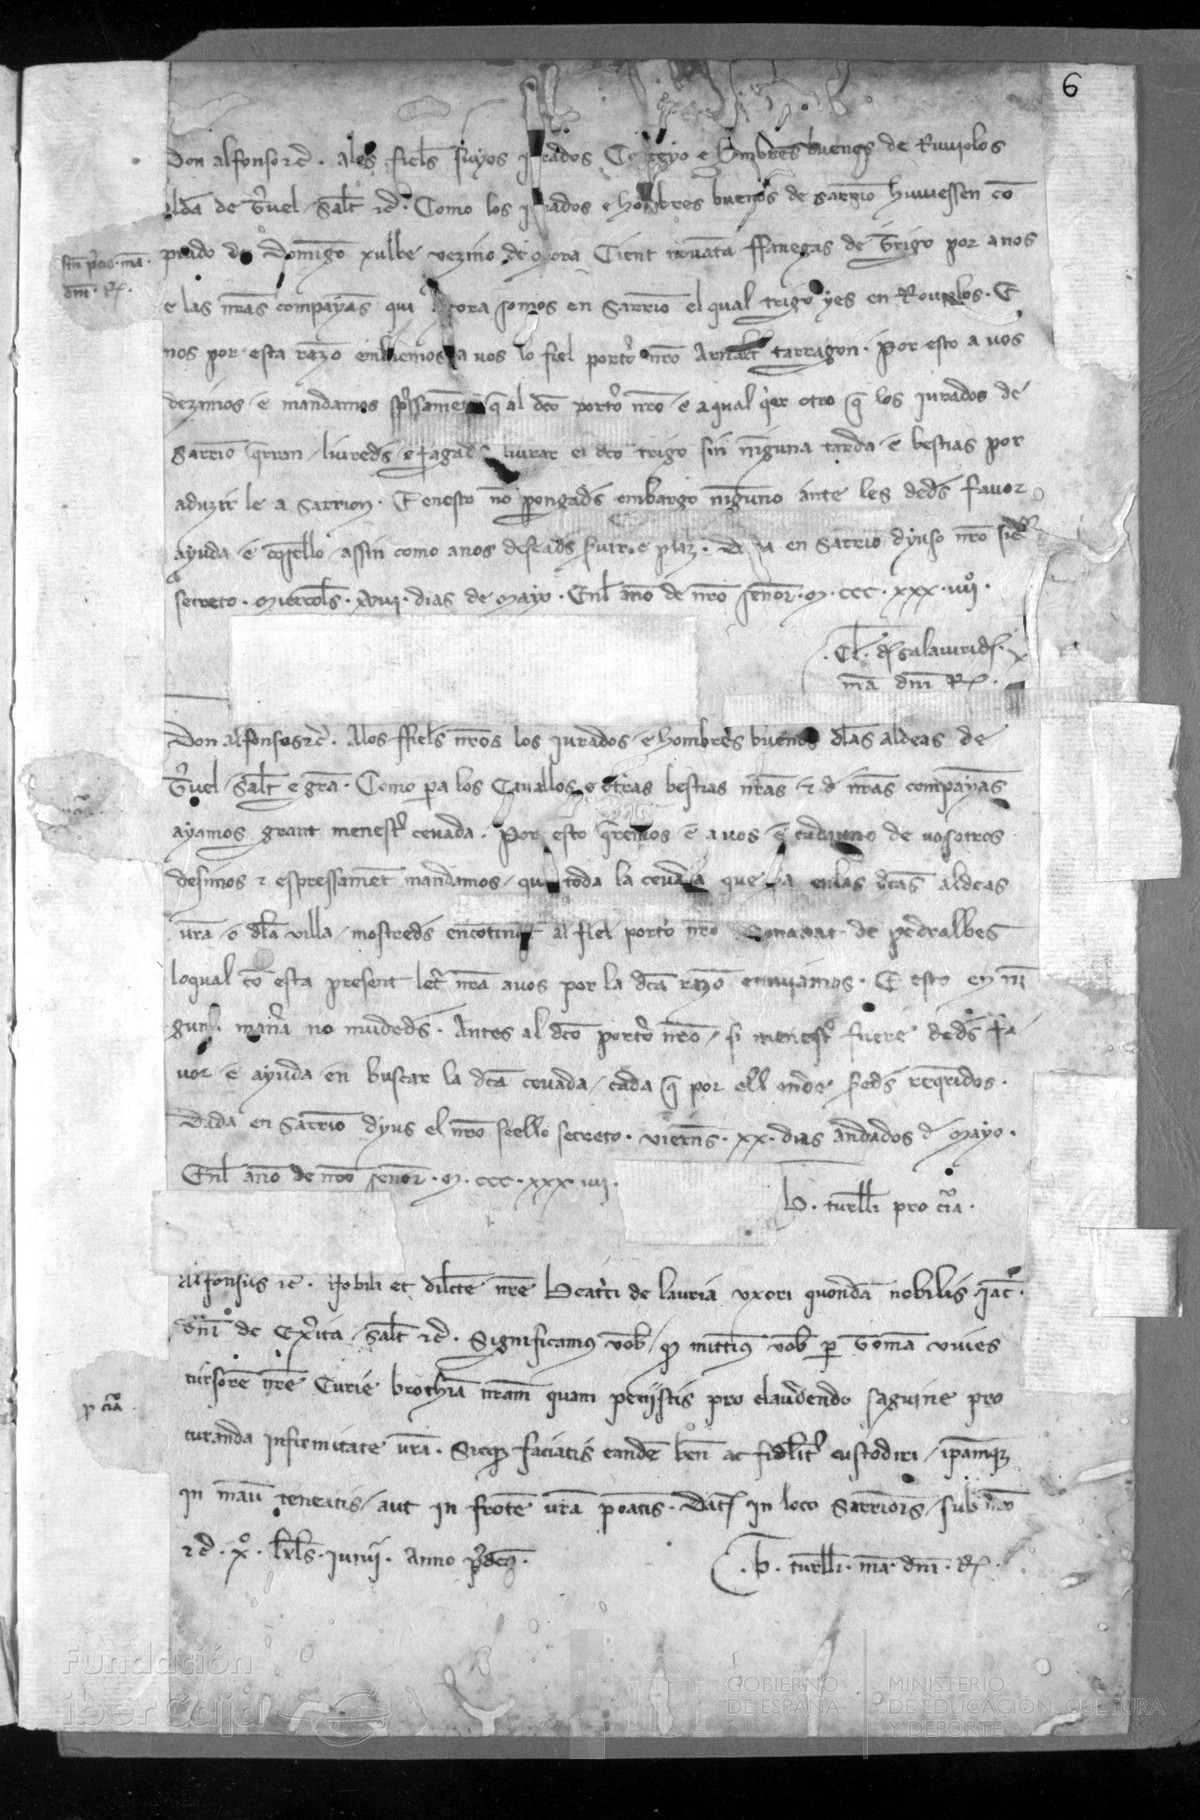 6
Don alfonso etc. Alos fiels suyos jurados Conceyo e hombres buenos de Ruviolos
aldea de Teruel Salut etc. Como los jurados e hombres buenos de Sarrion huviessen com
prado de Domingo vezino de Mora Cient novanta ffanegas de Trigo por a nos
e las nras companyas qui agora somos en Sarrion el qual trigo yes en Rouielos. E
nos por esta razon embiemos a vos lo fiel portero nro Arnalt tarragon. Por esto a vos
dezimos e mandamos expressament que al dito portero nro e a qual quier otro que los jurados de
Sarrion querran liureds e fagads liurar el dito trigo sin ninguna tarda e bestias por
aduzir le a Sarrion. E en esto no pongads embargo ninguno ante les deds favor
ayuda e consello assin como a nos deseads servir e plazer. Dada en Sarrion dyuso nro siello
secreto. Miercols. XVIII. dias de Mayo. Enl año de nro senor. M. CCC. XXX. IIII.
mand dni R.
Don alfonso etc. Alos ffiels nros los jurados e hombres buenos dlas aldeas de
Teruel Salut e gra. Como pora los Cavallos e otras bestias nras e de nras companyas
ayamos grant menester cevada. Por esto queremos e a vos e cadauno de vosotros
desimos e expressament mandamos que toda la cevada que ha en las ditas aldeas
vras o dla villa mostreds encontinent al fiel portero nro Bonanat de pedralbes
loqual con esta present letra nra a vos por la dita razon enviamos. E esto en nin
guna manera no mudeds. Antes al dito portero nro si menester fuere deds fa
vor e ayuda en buscar la dita cevada cada que por ell ende sereds requeridos.
Dada en Sarrion dyus el nro seello secreto. Viernes. XX. dias andados de Mayo.
Enl año de nro senor. M. CCC. XXX. IIII.
B. turelli pro cia.
Alfonsus etc. Nobili et dilecte nre Beatrici de lauria uxori quondam nobilis Jac.
dni de Exerica Salt etc. Significamus vob qd mittimus vob per Thomam vives
cursorem nre Curie brochiam nram quam petiistis pro claudendo saguine pro
curanda infirmitate vra. Sicque faciatis eandem bene ac fideliter custodiri ipamque
in manu teneatis aut in fronte vra ponatis. Dat in loco Sarrionis sub nro
etc. X. kls. junii. Anno predco.
B. turelli. ma. dni. R.
p cia
Fundación
iberCaja
GOBIERNO
DE ESPAÑA
MINISTERIO
DE EDUCACIÓN, CULTURA
Y DEPORTE